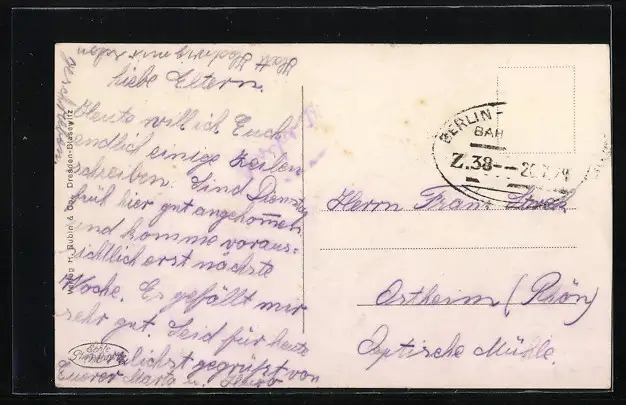 Liebe Eltern.
Heute will ich Euch
endlich einige Zeilen
schreiben. Sind Dienstag
früh hier gut angekommen
und komme voraus=
sichtlich erst nächste
Woche. Es gefällt mir
sehr gut. Seid für heute
herzlichst gegrüßt von
Eurer Marta u.
Verlag H. Rubin & Co., Dresden-Blasewitz
BERLIN-
BAH
Z.38
Herrn Franz
Ostheim (Rhön)
Optische Mühle.